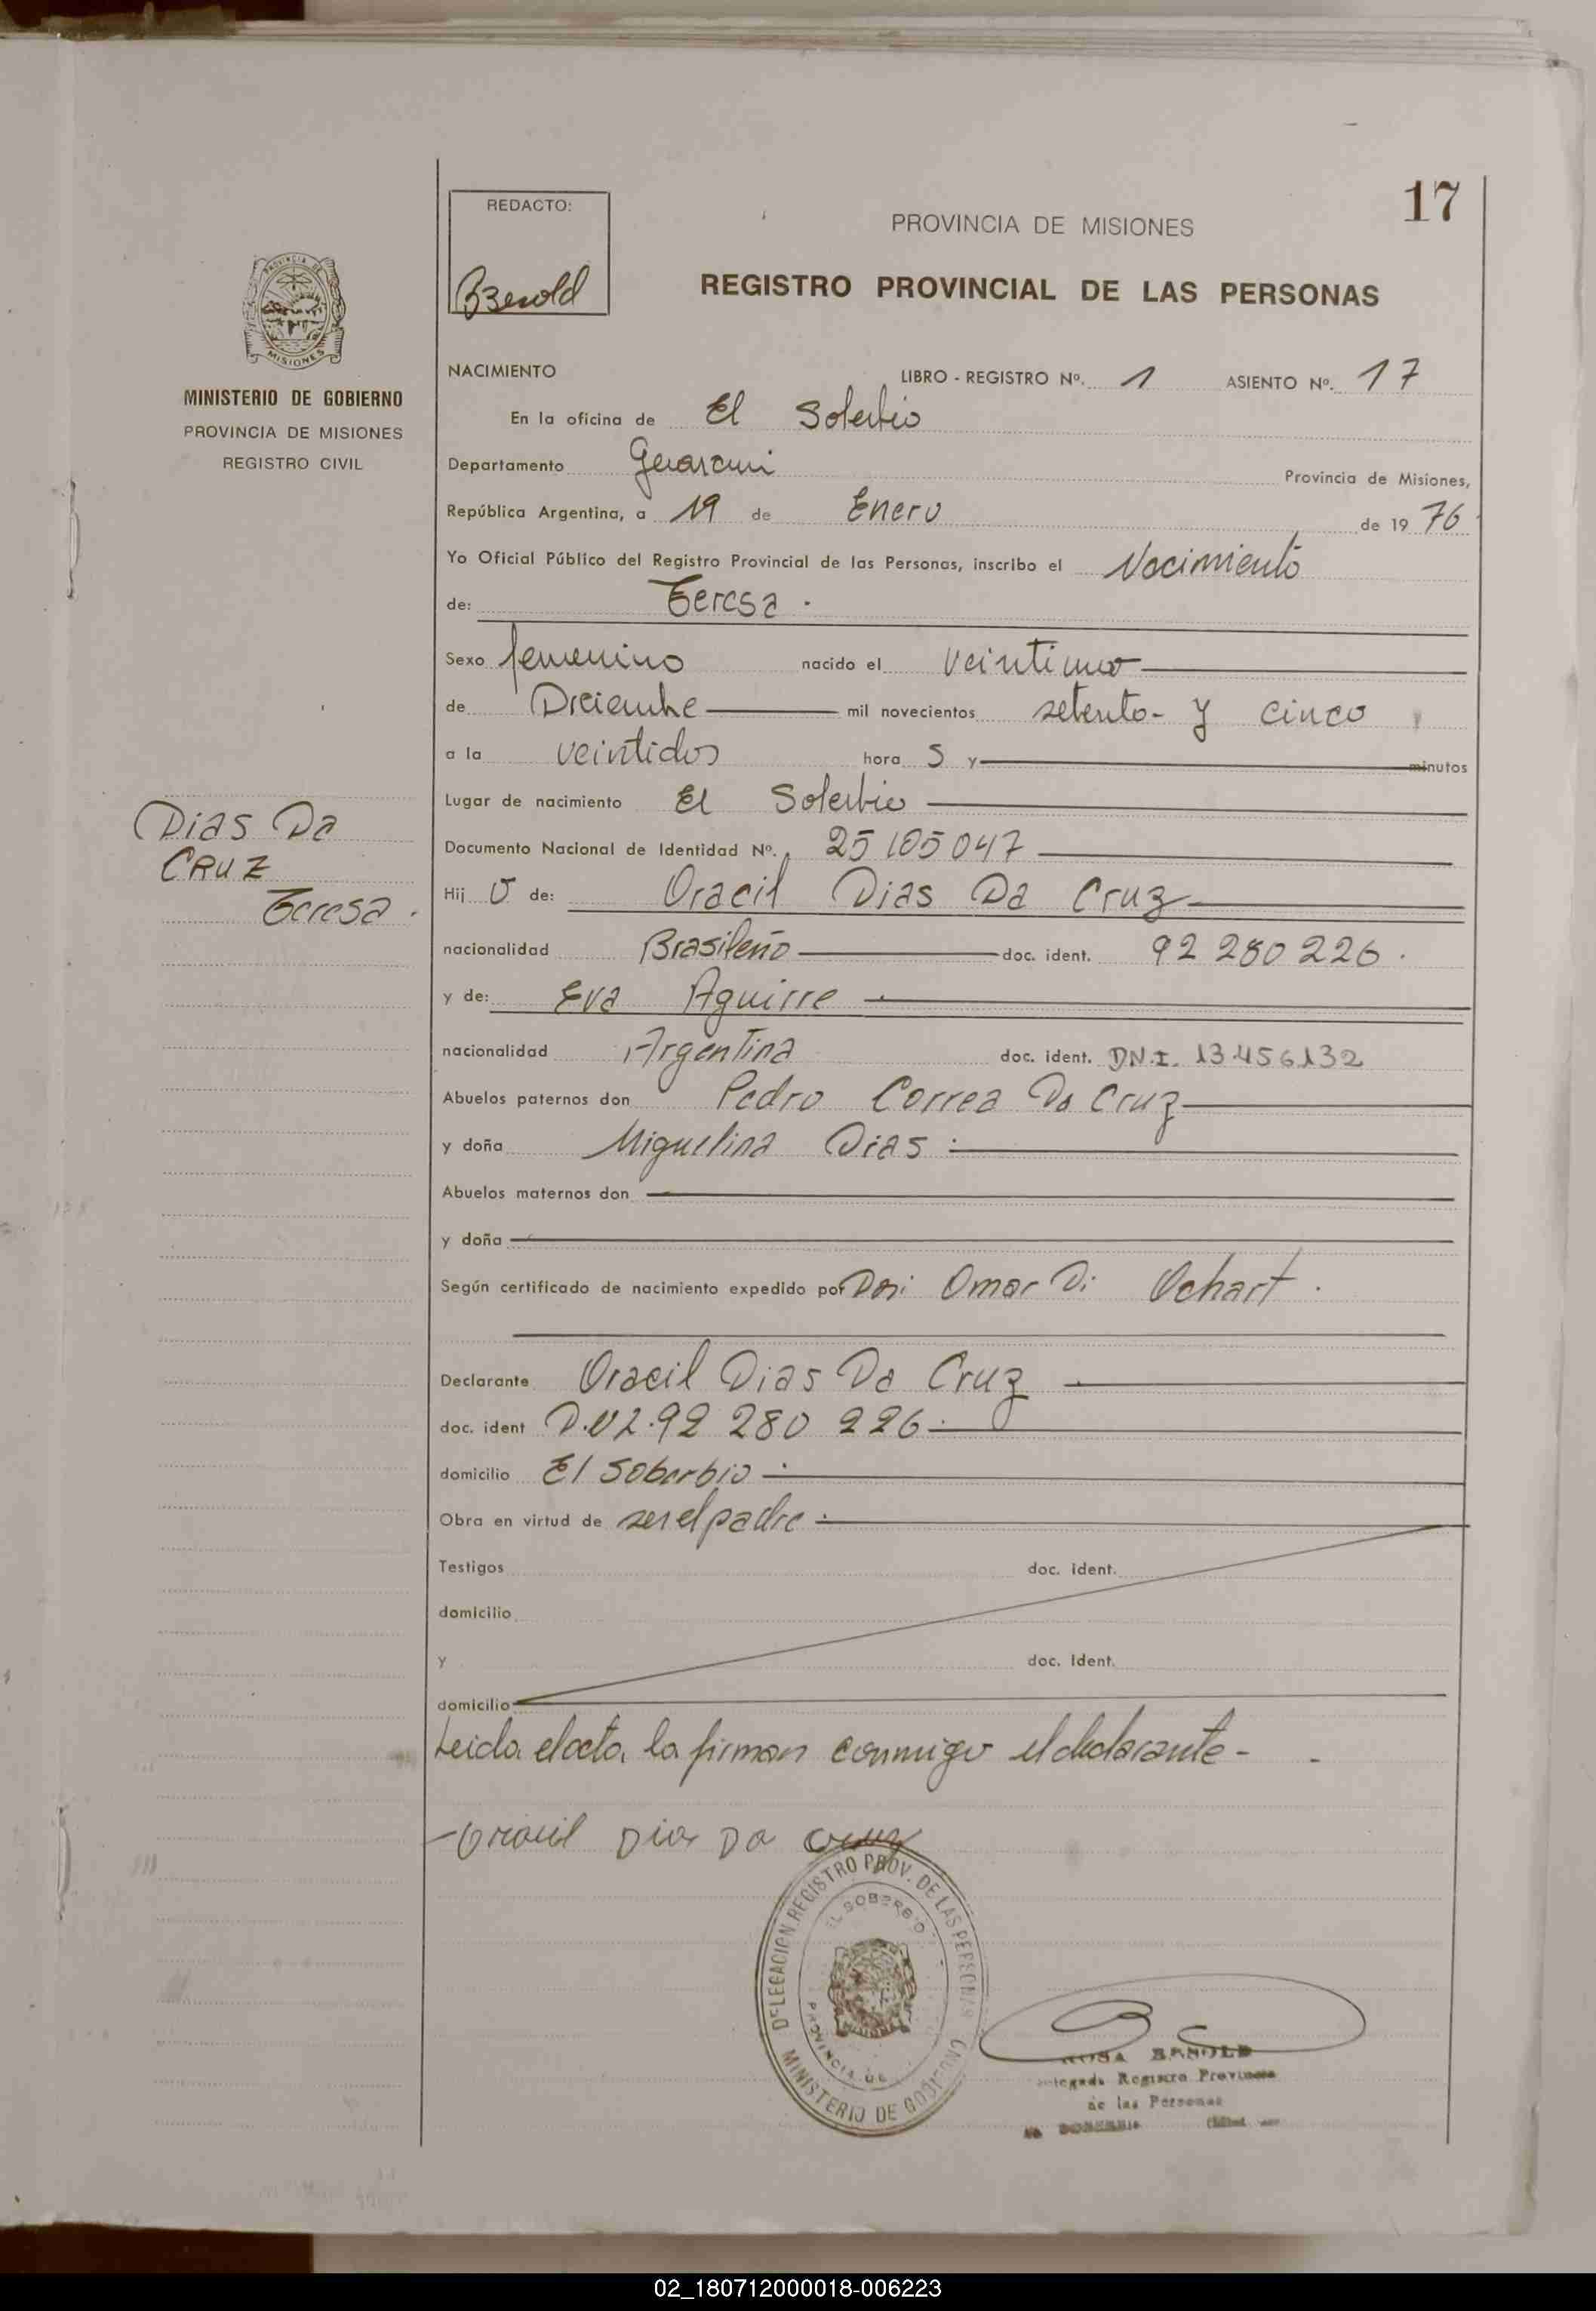 17
REDACTO:
PROVINCIA DE MISIONES
Bzenold
REGISTRO PROVINCIAL DE LAS PERSONAS
PROVINCIA DE
MISIONES
MINISTERIO DE GOBIERNO
PROVINCIA DE MISIONES
REGISTRO CIVIL
NACIMIENTO LIBRO - REGISTRO Nº. 1 ASIENTO Nº. 17
En la oficina de El Soberbio
Departamento Guarani Provincia de Misiones,
República Argentina, a 19 de Enero de 1976
Yo Oficial Público del Registro Provincial de las Personas, inscribo el Nacimiento
de: Teresa.
Sexo femenino nacido el veintiuno
de Diciembre mil novecientos setenta- y cinco
a la veintidos hora s y minutos
Lugar de nacimiento El Soberbio
Documento Nacional de Identidad Nº. 25 105 047
Dias Da
CRUZ
Teresa.
Hij o de: Oracil Dias Da Cruz
nacionalidad Brasileño doc. ident. 92 280 226.
y de: Eva Aguirre
nacionalidad Argentina doc. ident. D.N.I. 13.456.132
Abuelos paternos don Pedro Correa Da Cruz
y doña Miguelina Dias.
Abuelos maternos don
y doña
Según certificado de nacimiento expedido por Omar Di Ochart.
Declarante Oracil Dias Da Cruz
doc. ident D.N.I. 92 280 226.
domicilio El Soberbio.
Obra en virtud de ser el padre.
Testigos doc. ident.
domicilio
y doc. Ident.
domicilio
Leida el acta, la firman conmigo el declarante-
Oracil Dias Da Cruz
DELEGACION REGISTRO PROV. DE LAS PERSONAS
EL SOBERBIO
PROVINCIA DE
MINISTERIO DE GOBIERNO
ROSA BENOLD
Delegada Registro Provincia
de las Personas
EL SOBERBIO
02_180712000018-006223